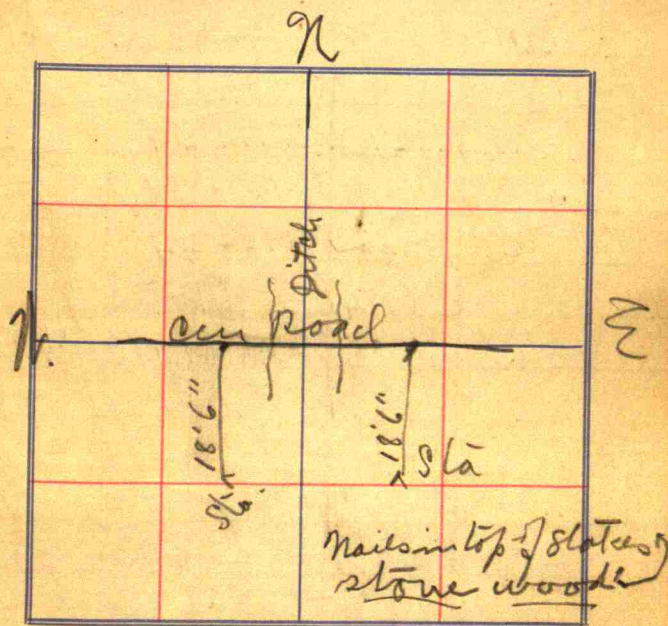 N
Ditch
W.
cen Road
E
18'6"
18'6"
Sta.
Sta
Nails in top of stakes
stone wood